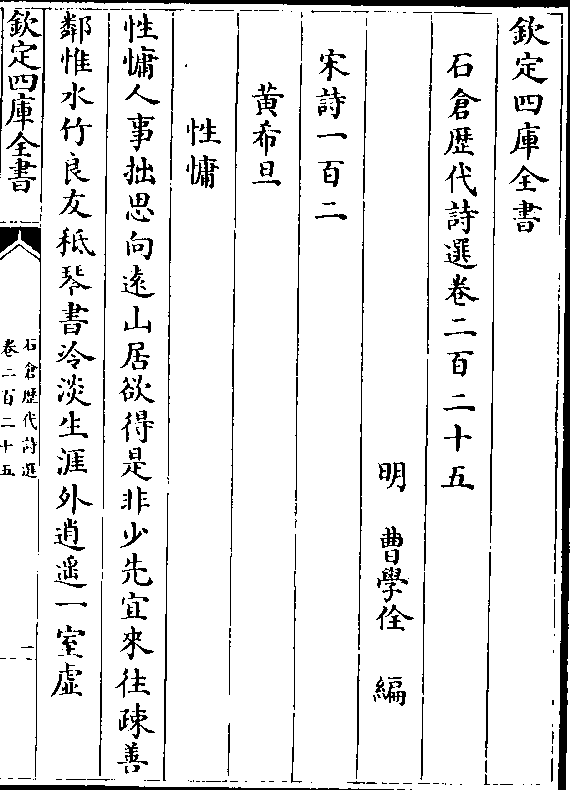 欽定四庫全書
石倉歷代詩選卷二百二十五
明 曹學佺 編
宋詩一百二
黃希旦
性慵
性慵人事拙思向逺山居欲得是非少先宜來往疎善
鄰惟水竹良友秪琴書冷淡生涯外逍遥一室虛
欽定四庫全書
石倉歷代詩選
卷二百二十五
一